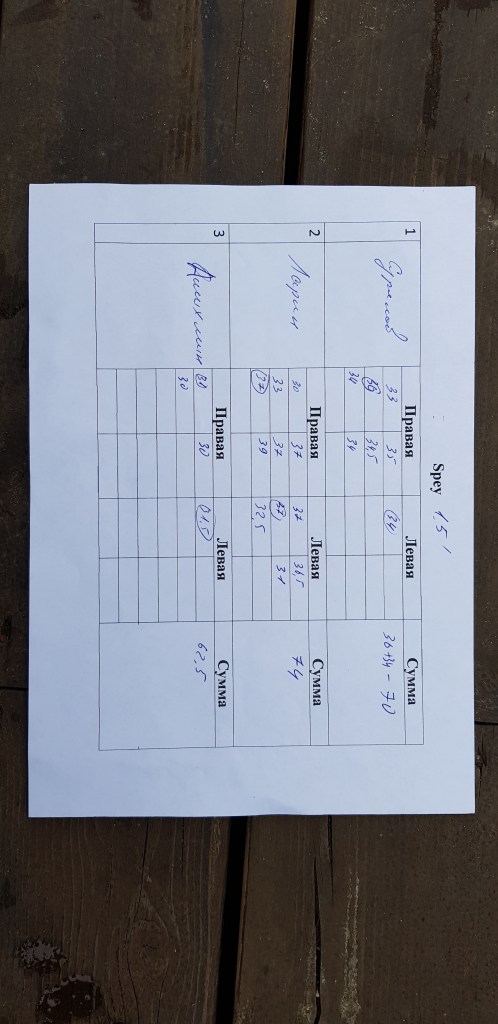 Spey 15'
1 Правая Левая Сумма
33 35 (34) 36+34-70
34,5
34 34
2 Ларин Правая Левая Сумма
30 37 37 31,5 74
33 37 (37) 31
(37) 39 32,5
3 Правая Левая Сумма
30 (31,5) 62,5
30